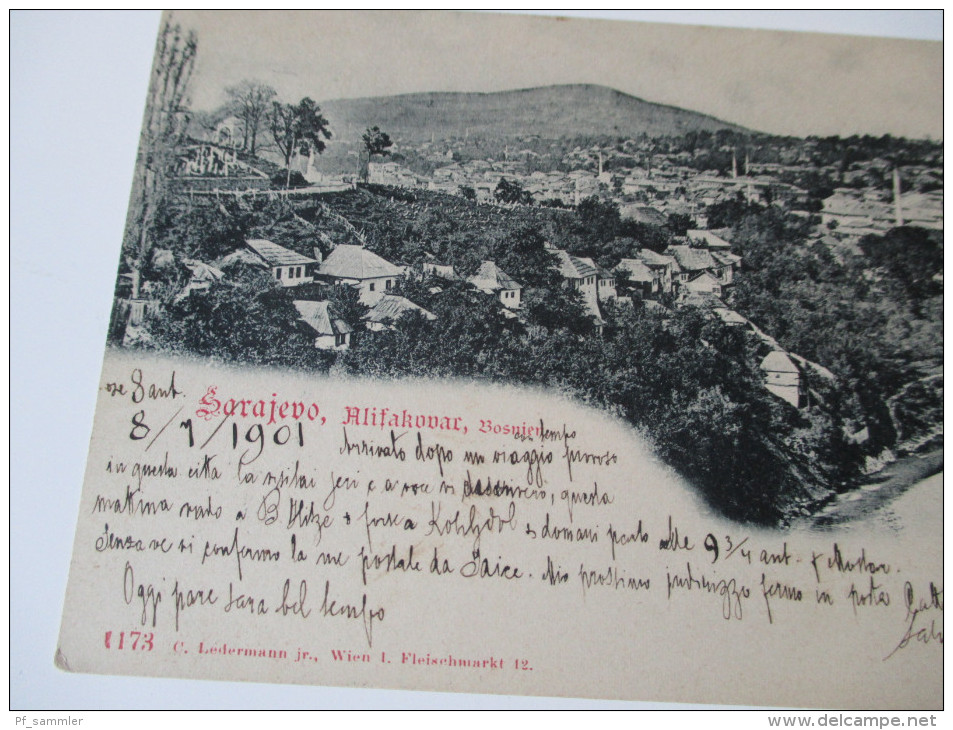 ore 8 ant.
Sarajevo, Alifakovac, Bosnien
8/7/1901 Arrivato dopo un viaggio con tempo piovoso
in questa città la visitai jeri e a voce vi descriverò, questa
mattina vado a B. Ilidze e forse a domani parto alle 9 3/4 ant. p Mostar.
Senza ve vi confermo la me postale da Jaice. Mio prossimo indirizzo fermo in posta
Oggi pare sara bel tempo
1173 C. Ledermann jr., Wien I. Fleischmarkt 12.
Pf_sammler
www.delcampe.net